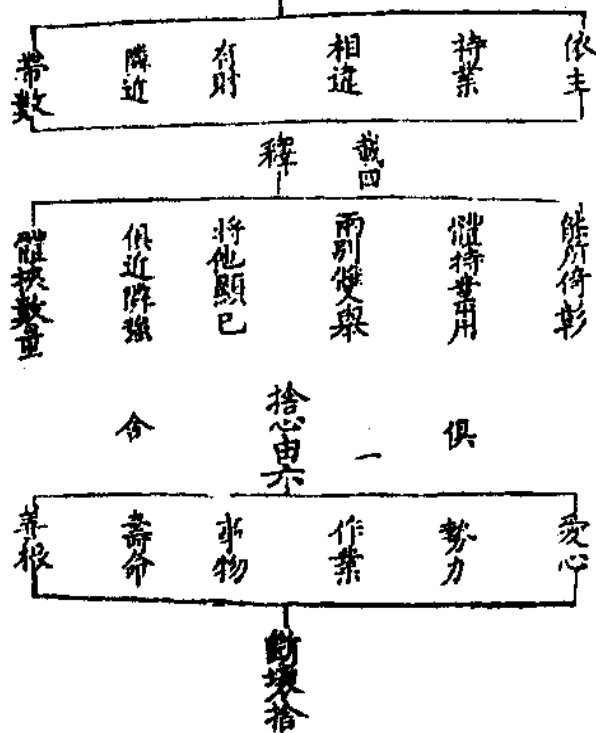 依主
持業
相違
有財
隣近
帶數
載四
釋
能所倚彰
體持業用
兩別雙舉
將他顯己
俱近隣強
體挾數量
俱
一
捨心由六
含
愛心
勢力
作業
事物
壽命
善根
斷壞捨